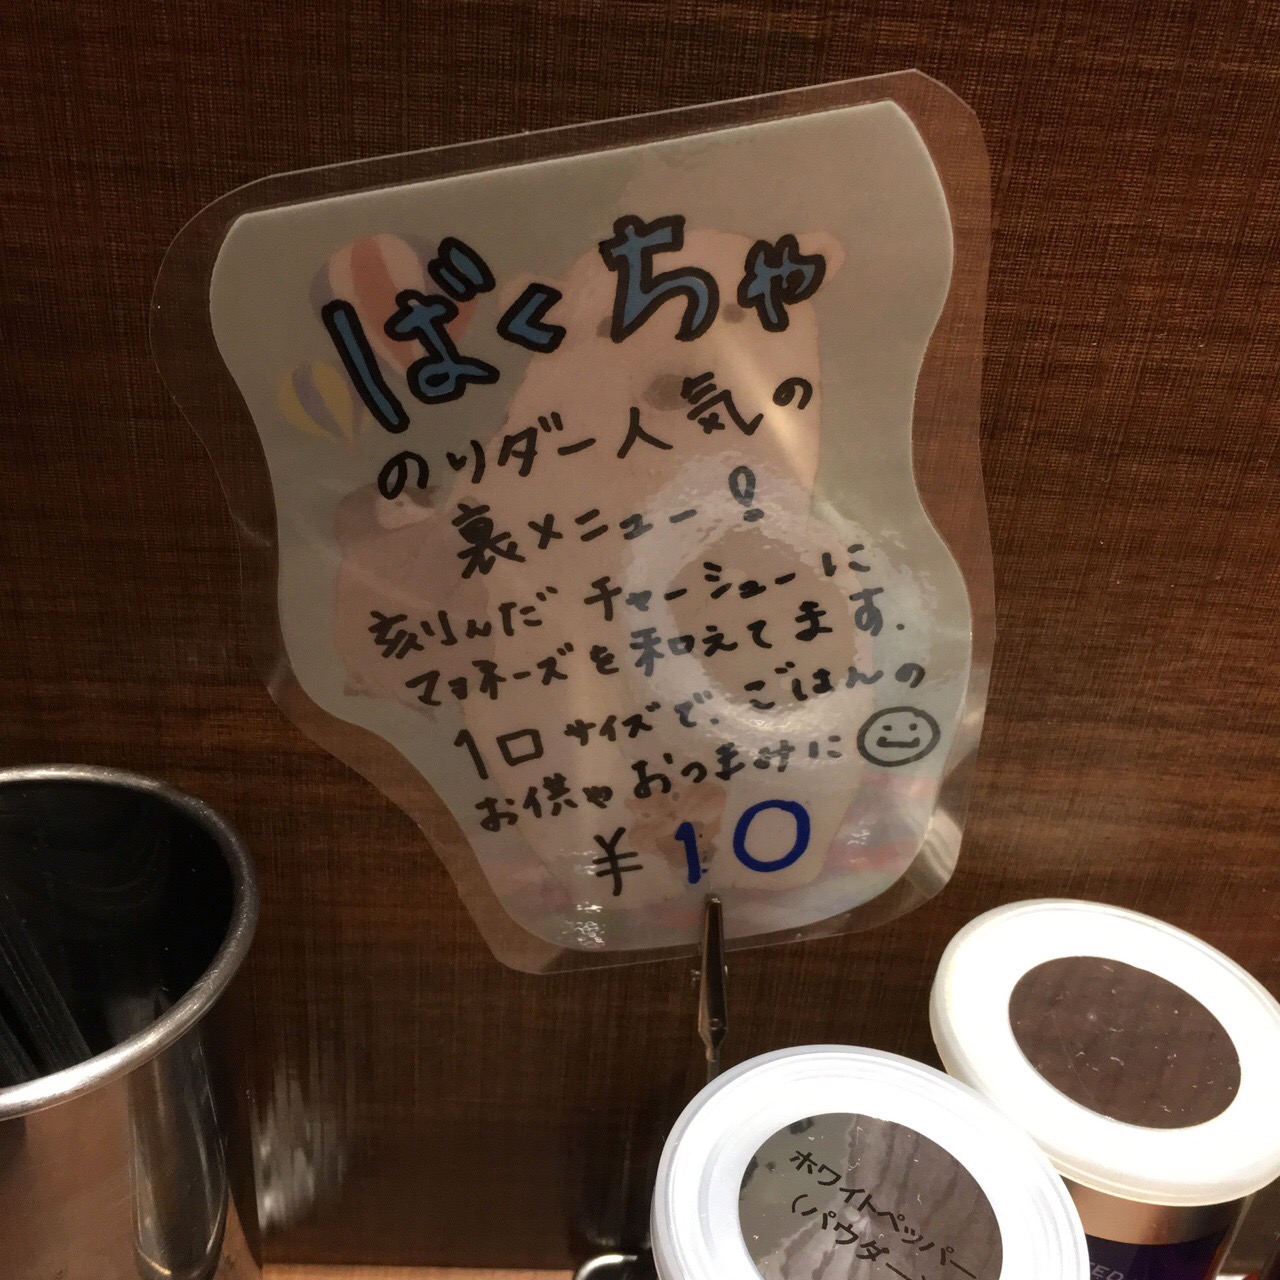 ばくちゃ
のりダー人気の
裏メニュー!
刻んだチャーシューに
マヨネーズを和えてます.
1口サイズで、ごはんの
お供やおつまみに
¥10
ホワイトペッパー
(パウダー)